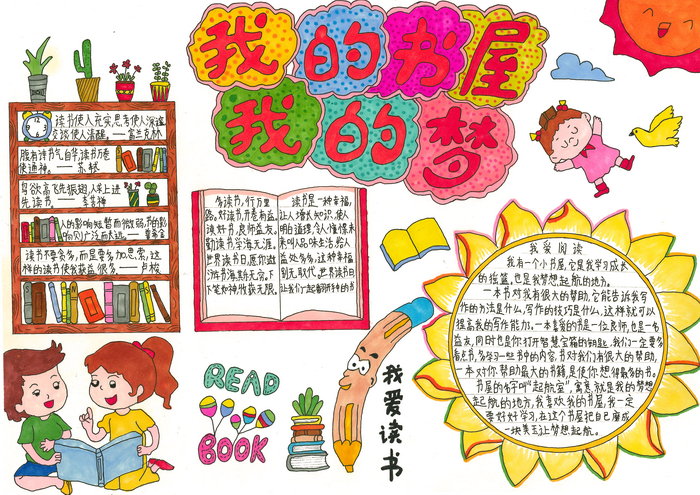 我的书屋
我的梦
读书使人充实,思考使人深邃
交谈使人清醒。——富兰克林
腹有诗书气自华,读书万卷
使通神。——苏轼
鸟欲高飞先振翅,人学上进
先读书。——李苦禅
人的影响短暂而微弱,书的影
响则广泛而长远。——普希金
读书不要贪多,而是要多加思索,这
样的读书使我获益很多。——卢梭
多读书,行万里
路。好读书,开卷有益。
读好书,良师益友。
勤读书,学海无涯。
世界读书日,愿你遨
游书海,黔无穷。下
下笔如神,收获无限。
读书是一种幸福,
让人增长知识,使人
明白道理,令人憧憬未
来叫人品味生活,给人
益处多多。这种幸福
别无取代。世界读书日
让我们一起翻开手中的书
我爱阅读
我有一个小书屋,它是我学习成长
的摇篮,也是我梦想起航的地方。
一本书对我有很大的帮助,它能告诉我写
作的方法是什么,写作的技巧是什么,这样就可以
提高我的写作能力。一本喜爱的书是一位良师,也是一名
益友,同时也是你打开智慧宝箱的钥匙。我们一定要多
看点书,多学习一些书中的内容,书对我们有很大的帮助,
一本对你帮助最大的书籍,是使你想得最多的书。
书屋的名字叫“起航室”,寓意就是我的梦想
起航的地方,我喜欢我的书屋,我一定
要好好学习,在这个书屋把自己磨成
一块美玉让梦想起航。
READ
BOOK
我爱读书